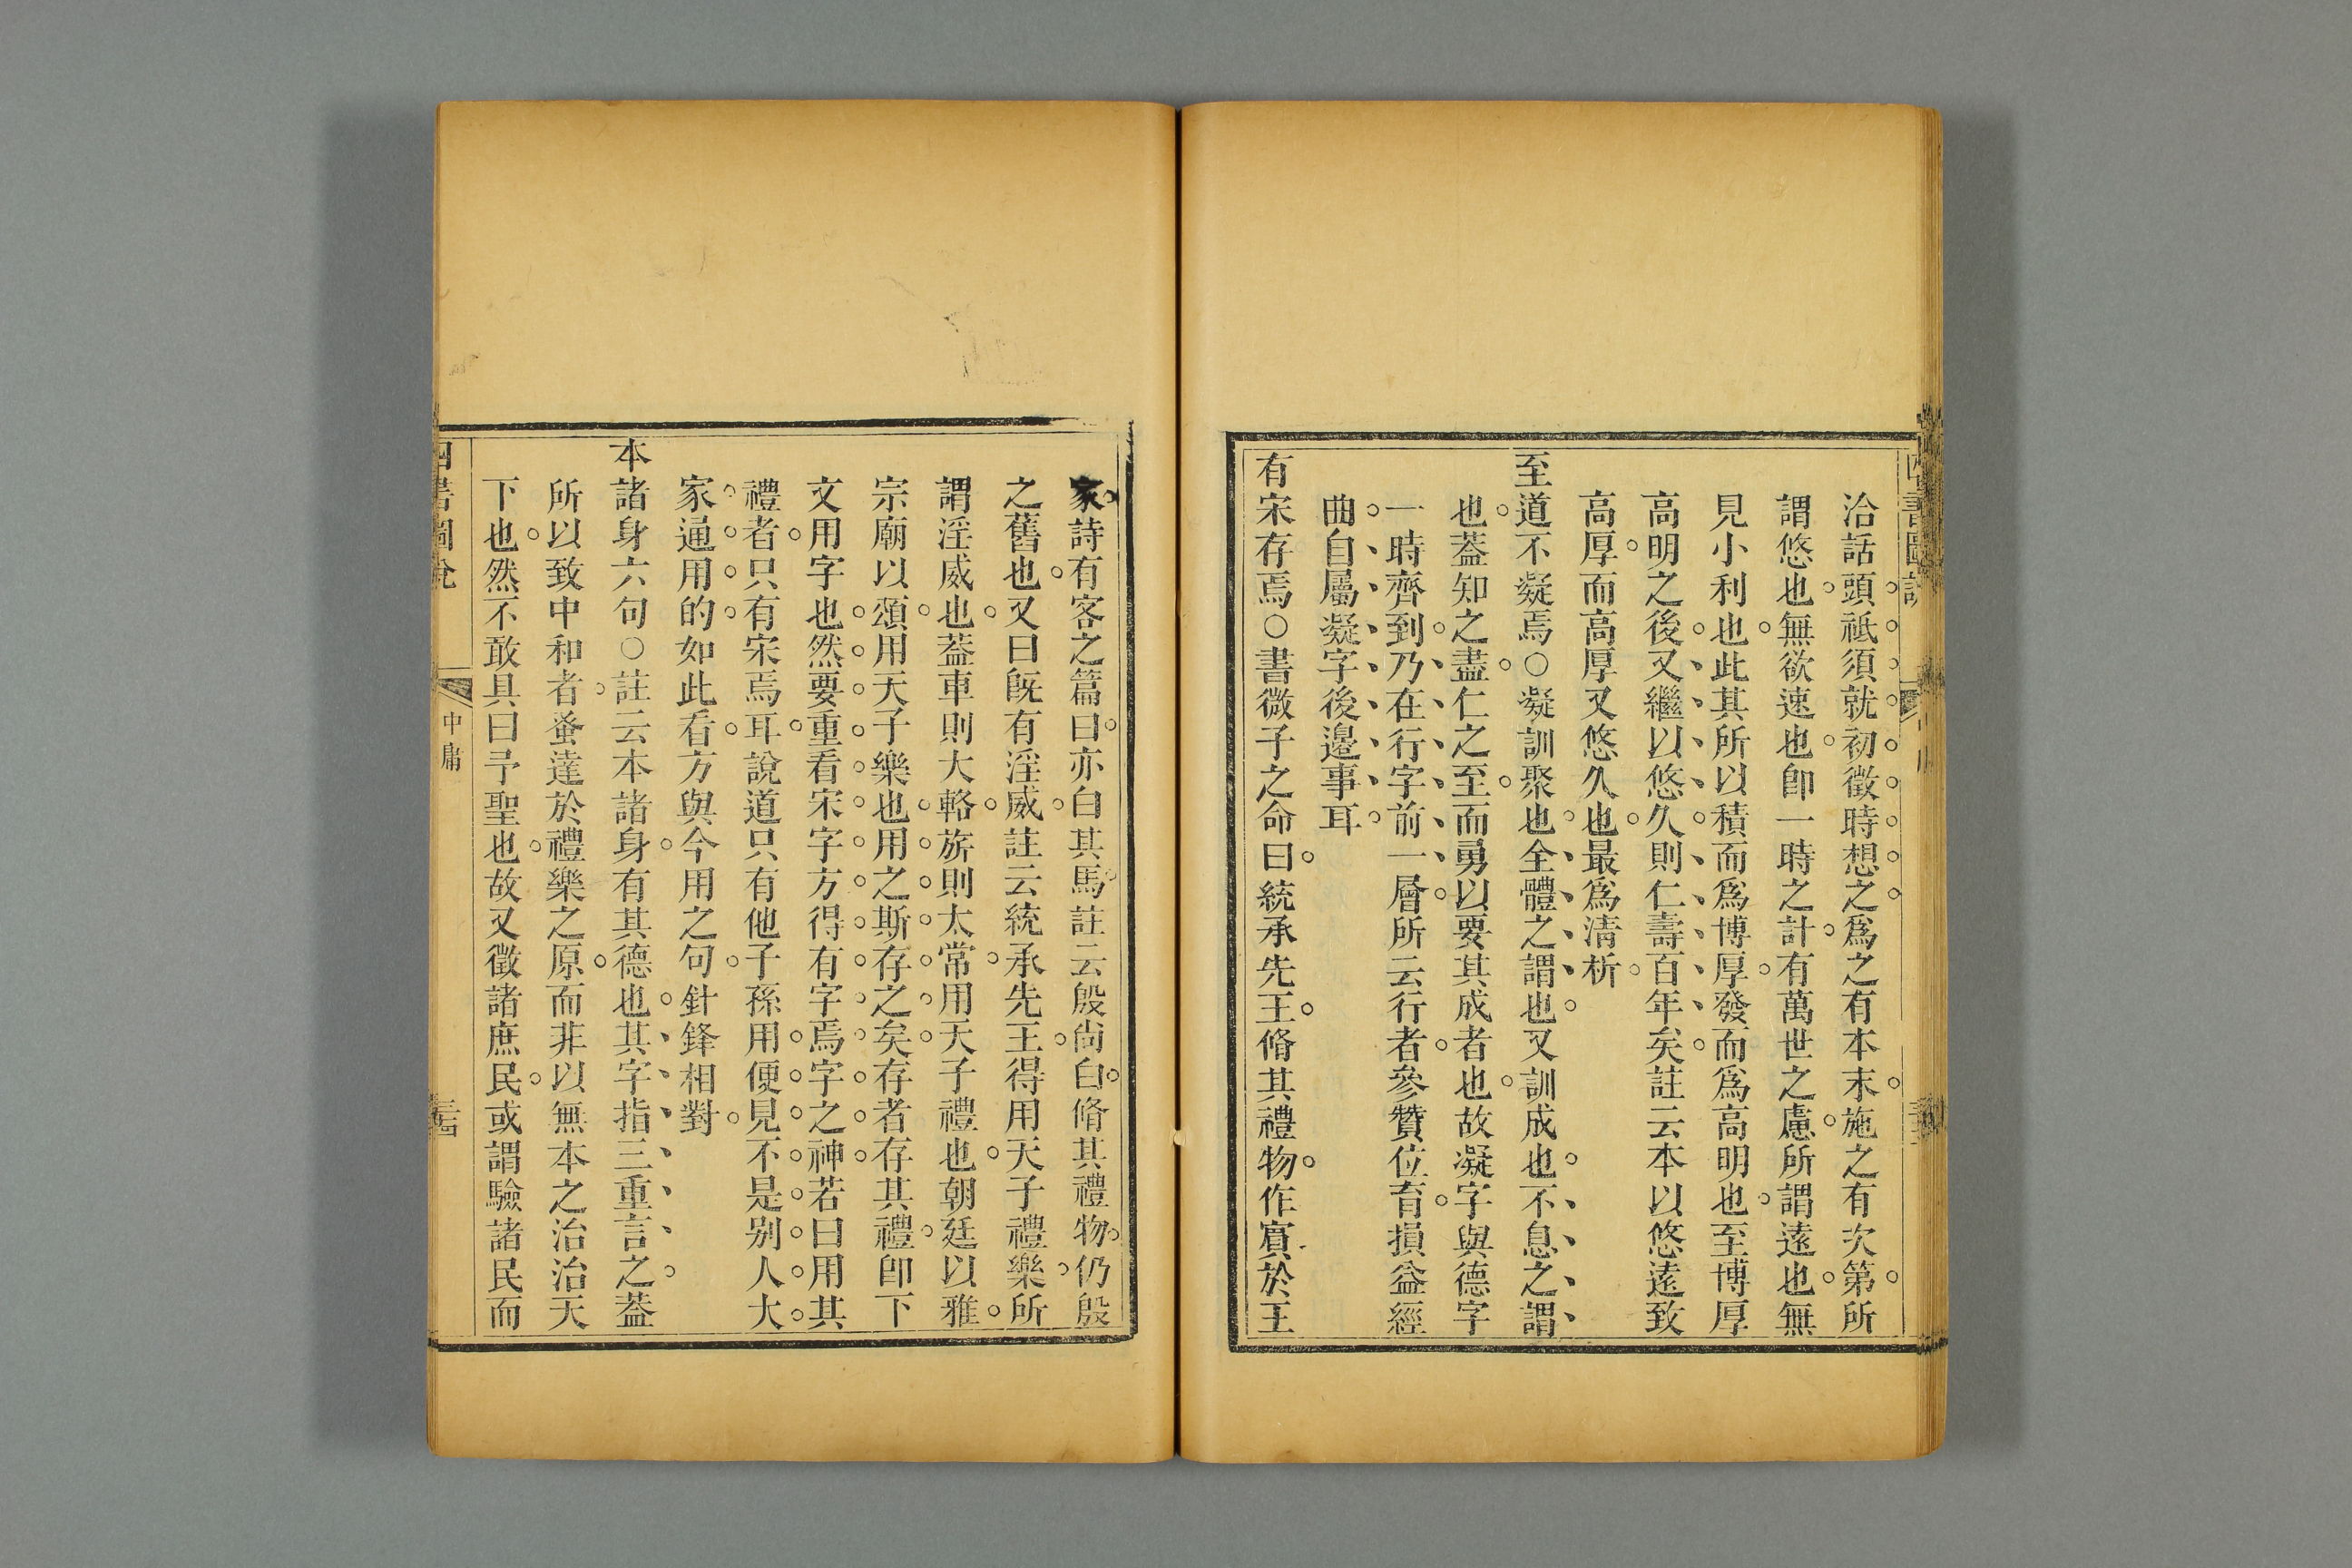 洽話頭祗須就初徵時想之爲之有本末施之有次第所
謂悠也無欲速也卽一時之計有萬世之慮所謂遠也無
見小利也此其所以積而爲博厚發而爲高明也至博厚
高明之後又繼以悠久則仁壽百年矣註云本以悠遠致
高厚而高厚又悠久也最爲清析
至道不凝焉○凝訓聚也全體之謂也又訓成也不息之謂
也葢知之盡仁之至而勇以要其成者也故凝字與德字
一時齊到乃在行字前一層所云行者參贊位育損益經
曲自屬凝字後邊事耳
有宋存焉○書微子之命曰統承先王脩其禮物作賓於王
家詩有客之篇曰亦白其馬註云殷尙白脩其禮物仍殷
之舊也又曰旣有淫威註云統承先王得用天子禮樂所
謂淫威也葢車則大輅旂則太常用天子禮也朝廷以雅
宗廟以頌用天子樂也用之斯存之矣存者存其禮卽下
文用字也然要重看宋字方得有字焉字之神若曰用其
禮者只有宋焉耳說道只有他子孫用便見不是別人大
家通用的如此看方與今用之句針鋒相對
本諸身六句○註云本諸身有其德也其字指三重言之葢
所以致中和者蚤達於禮樂之原而非以無本之治治天
下也然不敢具曰予聖也故又徵諸庶民或謂驗諸民而
四書圖說
中庸
三四